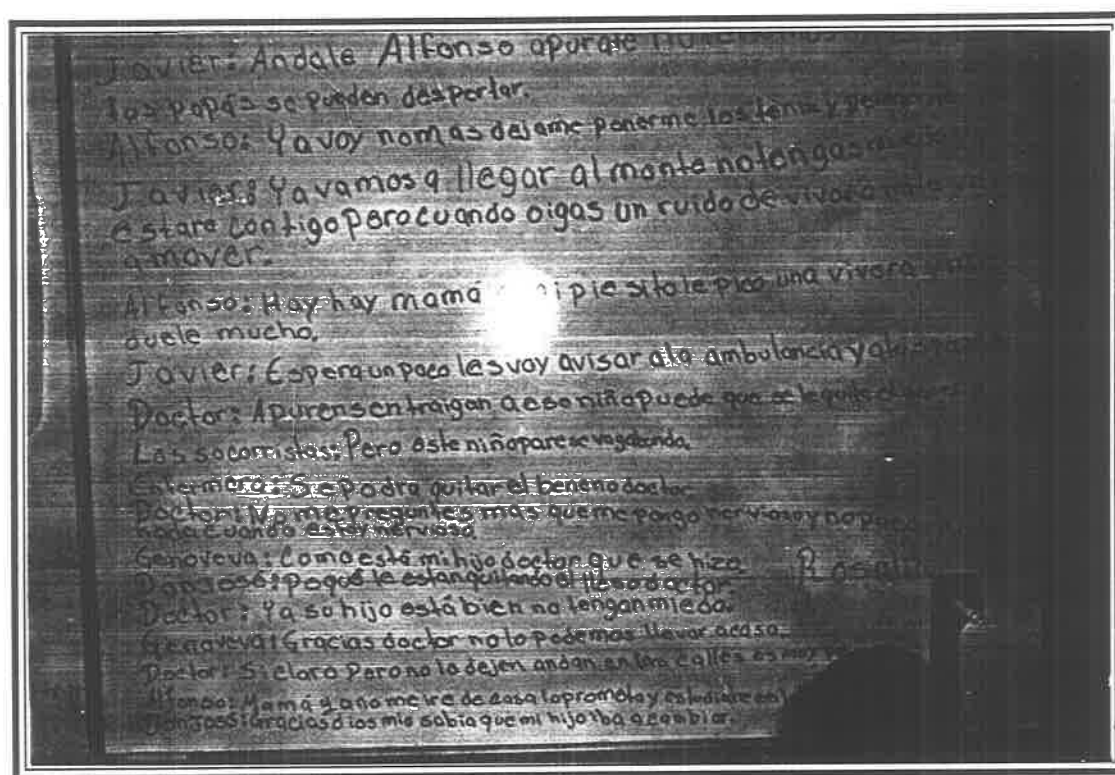 Javier: Andale Alfonso apurate
los papás se pueden despertar.
Alfonso: Ya voy nomas dejame ponerme los tenis y
Javier: Ya vamos a llegar al monte no tengas
estare contigo pero cuando oigas un ruido de vivora
a mover.
Alfonso: Hay hay mamá pie sito le pico una vivora
duele mucho.
Javier: Espera un poco les voy avisar ala ambulancia y
Doctor: Apurensen traigan a ese niño puede que se le quite el
Los socorristas: Pero este niño parese vagabundo.
Enfermera: Se podra quitar el beneno doctor
Doctor: No me preguntes mas que me pongo nervioso y no
nada cuando estoy nervioso
Genoveva: Como está mi hijo doctor que se hizo
Don José: Poqué le estan quitando el doctor.
Doctor: Ya su hijo está bien no tengan miedo.
Genoveva: Gracias doctor no lo podemos llevar a casa.
Doctor: Si claro Pero no lo dejen andan en las calles es muy
Alfonso: Mamá ya no me ire de casa lo prometo y estudiare en
Don José: Gracias dios mio sabia que mi hijo iba a cambiar.